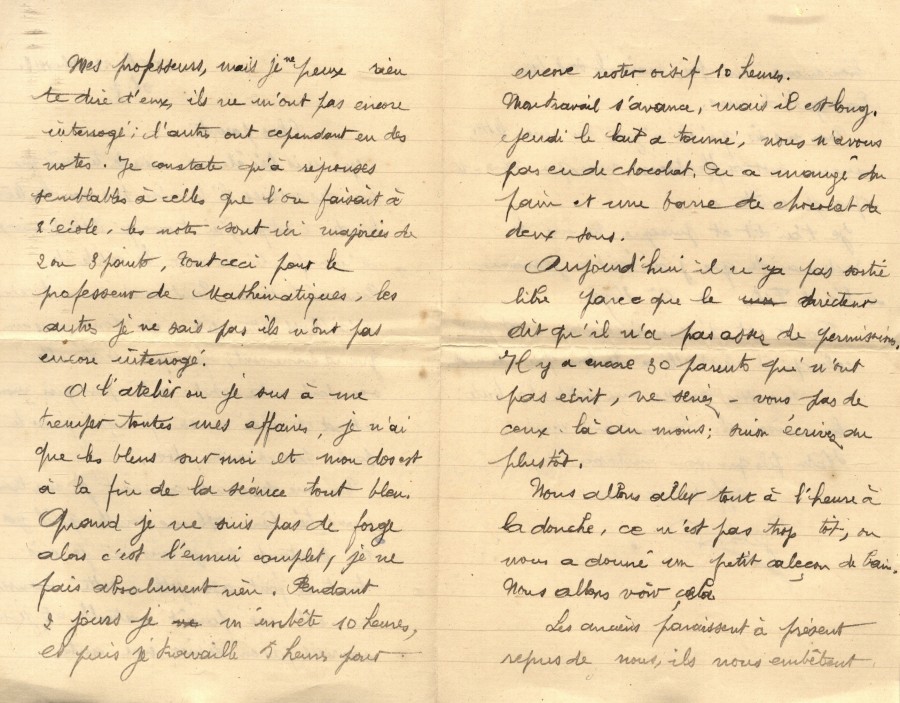 Mes professeurs, mais je ne peux rien
te dire d'eux, ils ne m'ont pas encore
interrogé ; d'autres ont cependant eu des
notes. Je constate qu'à réponses
semblables à celles que l'on faisait à
l'école, les notes sont ici majorées de
2 ou 3 points, tout ceci pour le
professeur de Mathématiques, les
autres je ne sais pas ils n'ont pas
encore interrogé.
A l'atelier ou je sus à me
tremper toutes mes affaires, je n'ai
que les bleus sur moi et mon dos est
à la fin de la séance tout bleu.
Quand je ne suis pas de forge
alors c'est l'ennui complet, je ne
fais absolument rien. Pendant
2 jours je m'embête 10 heures,
et puis je travaille 5 heures pour
encore rester oisif 10 heures.
Mon travail s'avance, mais il est long.
Jeudi le lait a tourné, nous n'avons
pas eu de chocolat. On a mangé du
pain et une barre de chocolat de
deux sous.
Aujourd'hui il n'y a pas sortie
libre parce que le directeur
dit qu'il n'a pas assez de permissions.
Il y a encore 30 parents qui n'ont
pas écrit, ne seriez-vous pas de
ceux-là au moins ; sinon écrivez au
plus tôt.
Nous allons aller tout à l'heure à
la douche, ce n'est pas trop tôt, on
nous a donné un petit caleçon de bain.
Nous allons voir cela
Les anciens paraissent à présent
repus de nous, ils nous embêtent